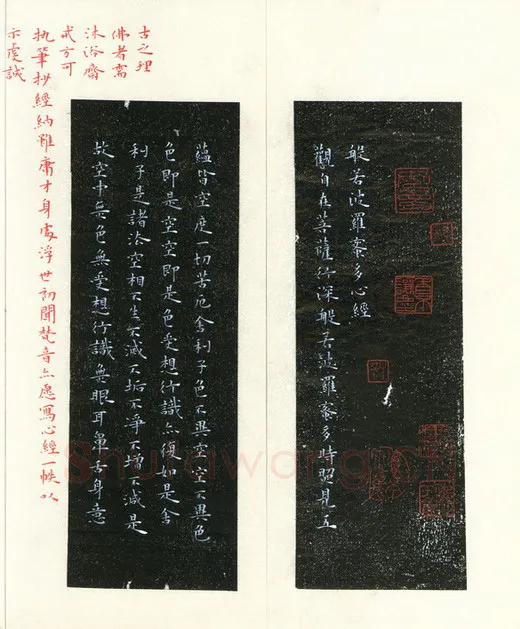 般若波羅蜜多心經
觀自在菩薩行深般若波羅蜜多時照見五
蘊皆空度一切苦厄舍利子色不異空空不異色
色即是空空即是色受想行識亦復如是舍
利子是諸法空相不生不滅不垢不淨不增不減是
故空中無色無受想行識無眼耳鼻舌身意
古之理
佛者需
沐浴齋
戒方可
执筆抄經納雖庸才身處浮世初聞梵音亦愿寫心經一帙以
示虔誠